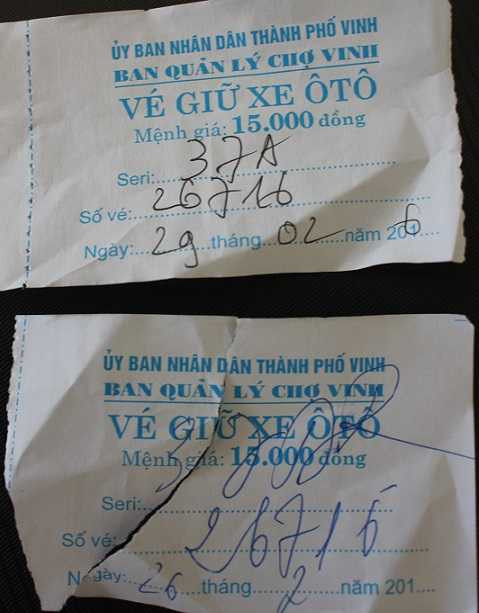 ỦY BAN NHÂN DÂN THÀNH PHỐ VINH
BAN QUẢN LÝ CHỢ VINH
VÉ GIỮ XE ÔTÔ
Mệnh giá: 15.000 đồng
Seri:..........37A..........
Số vé:....26716....
Ngày:....29....tháng....02....năm 2016....
ỦY BAN NHÂN DÂN THÀNH PHỐ VINH
BAN QUẢN LÝ CHỢ VINH
VÉ GIỮ XE ÔTÔ
Mệnh giá: 15.000 đồng
Seri:....................
Số vé:....26716....
Ngày:....26....tháng....2....năm 201....